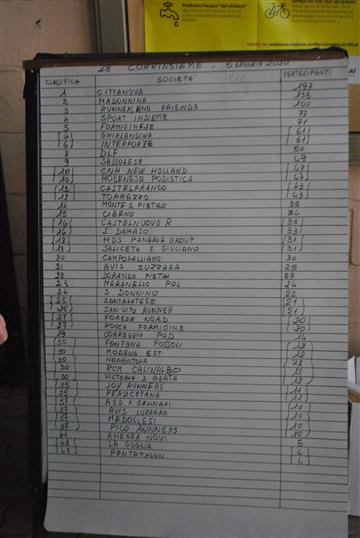 28 CORRINSIEME - 6 GENNAIO 2020
CLASSIFICA SOCIETA' PARTECIPANTI
1 CITTANOVA 197
2 MADONNINA 135
3 RUNNERS AND FRIENDS 100
4 SPORT INSIEME 77
5 FORMIGINESE 71
6 GHIRLANDINA 61
6 INTERFORZE 61
8 DLF 50
9 SASSOLESE 49
10 CNH NEW HOLLAND 47
10 MODENESE PODISTICA 47
12 CASTELFRANCO 43
12 TORRAZZO 43
14 MONTE S PIETRO 36
15 CIBENO 34
16 CASTELNUOVO R 33
16 S DAMASO 33
18 MDS PANARIA GROUP 31
18 SALICETA S GIULIANO 31
20 CAMPOGALLIANO 30
21 AVIS SUZZARA 29
22 DORANDO PIETRI 27
23 MARANELLO POL 24
24 S DONNINO 22
25 SANTAGATESE 21
25 SAN VITO RUNNER 21
27 NORD 20
27 ROCCA FORMIGINE 20
29 CORREGGIO POD 14
30 FONTANA FOSSOLI
30 MODENA EST
30 NONANTOLA
30 RCM CASINALBO
30 VICTORIA S AGATA
35 JOY RUNNERS 11
35 PERSICETANA 11
37 10
37 AVIS LUZZARA 10
37 MEDOLLESI 10
37 PICO RUNNERS 10
41 NOVI 5
42 LA GUGLIA 4
42 PENTATHLON 4